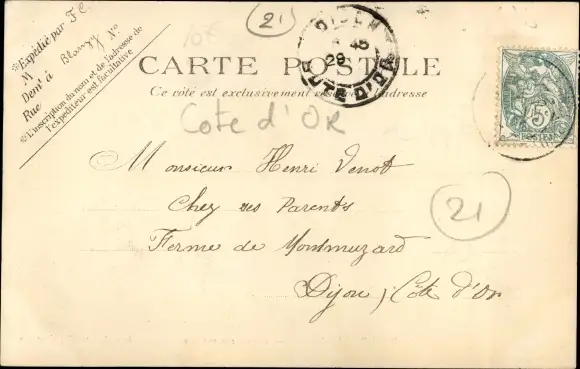 *Expédié par F. C.
M
Demt à Blangy
Rue No
*L'inscription du nom et de l'adresse de
l'expéditeur est facultative
21
DIJON
45
29
COTE D'OR
CARTE POSTALE
Ce côté est exclusivement réservé à l'adresse
5c
POSTES
Cote d'OR
Monsieur Henri Venot
Chez ses Parents
21
Ferme de Montmuzard
Dijon, Côte d'Or